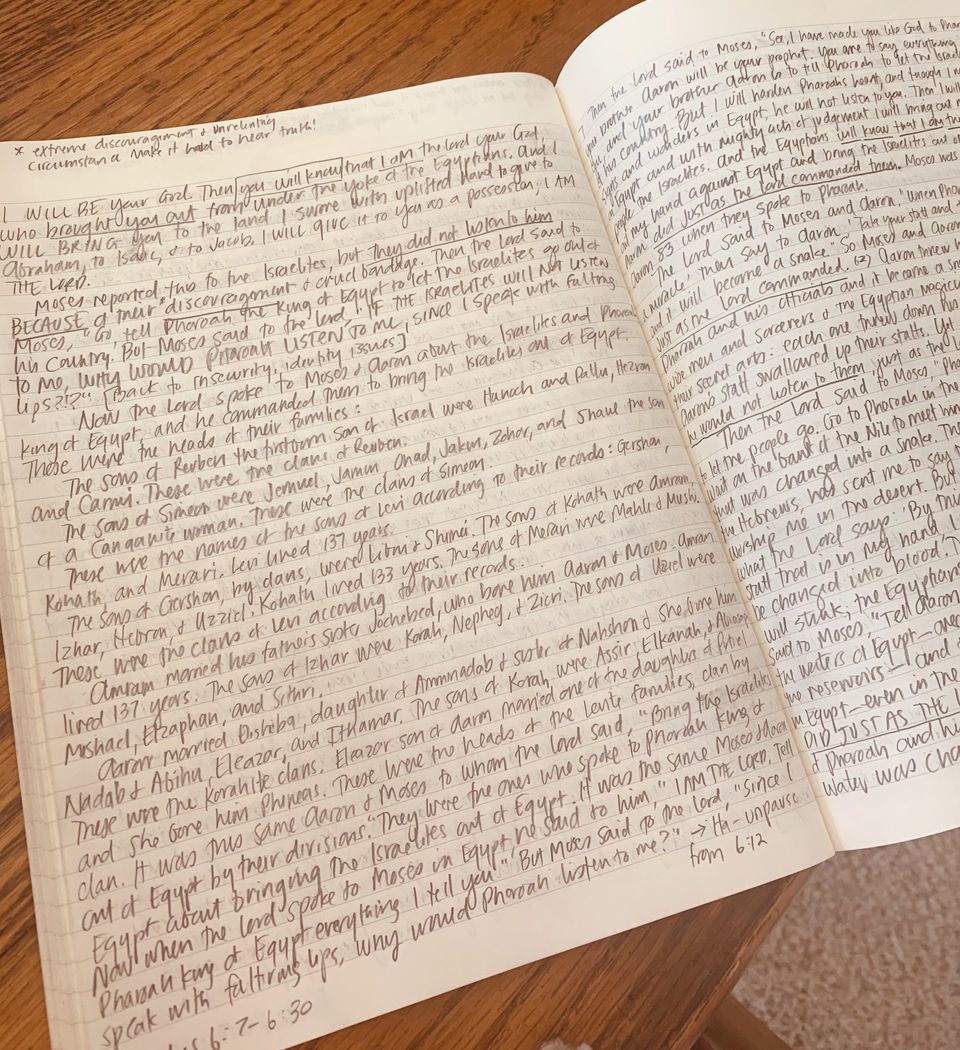 * extreme discouragement & unrelenting
circumstance make it hard to hear truth!
I WILL BE your God. Then you will know that I AM the Lord your God,
who brought you out from under the yoke of the Egyptians. And I
WILL BRING you to the land I swore with uplifted hand to give to
Abraham, to Isaac, & to Jacob. I will give it to you as a possession. I AM
THE LORD.
Moses reported this to the Israelites, but they did not listen to him
BECAUSE of their *discouragement & cruel bondage. Then the Lord said to
Moses, "Go, tell Pharoah the King of Egypt to let the Israelites go out of
his Country. But Moses said to the lord, "IF THE ISRAELITES WILL NOT LISTEN
TO ME, WHY WOULD PHAROAH LISTEN TO ME, SINCE I SPEAK WITH FALTRING
lips?!?" [Back to insecurity, identity issues]
Now the Lord spoke to Moses & Aaron about the Israelites and Pharoah
king of Egypt, and he commanded them to bring the Israelites out of Egypt.
These were the heads of their families:
The sons of Reuben the firstborn son of Israel were Hanoch and Pallu, Hezron
and Carmi. These were the clans of Reuben.
The sons of Simeon were Jemuel, Jamin, Ohad, Jakin, Zohar, and Shaul the son
of a Canaanite woman. These were the clans of Simeon.
These were the names of the sons of Levi according to their records: Gershon,
Kohath, and Merari. Levi lived 137 years.
The sons of Gershon, by clans, were Libni & Shimei. The sons of Kohath were amram,
Izhar, Hebron, & Uzziel. Kohath lived 133 years. The sons of Merari were Mahli & Mushi.
These were the clans of Levi according to their records.
Amram married his father's sister Jochebed, who bore him Aaron & Moses. Amram
lived 137 years. The sons of Izhar were Korah, Nepheg, & Zicri. The sons of Uzziel were
Mishael, Elzaphan, and Sithri.
Aaron married Elisheba, daughter of Amminadab & sister of Nahshon & she bore him
Nadab & Abihu, Eleazar, and Ithamar. The sons of Korah were Assir, Elkanah, & Abiasaph
These were the Korahite clans. Eleazor son of Aaron married one of the daughters of Putiel
and she bore him Phineas. These were the heads of the levite families, clan by
clan. It was this same Aaron & Moses to whom the lord said, "Bring the Israelites
out of Egypt by their divisions." They were the ones who spoke to pharoah king of
Egypt about bringing the Israelites out of Egypt. It was the same Moses & Aaron
Now when the lord spoke to Moses in Egypt he said to him, "I AM THE LORD. Tell
Pharoah king of Egypt everything I tell you." But Moses said to the lord, "Since I
speak with faltring lips, why would Pharoah listen to me?" → Ha - unpause
from 6:12
6:7-6:30
Then the Lord said to Moses, "See, I have made you like God to
your brother Aaron will be your prophet. You are to say everything
and your brother Aaron is to tell Pharoah to let the
his country. But I will harden Pharoahs heart, and though I
signs and wonders in Egypt, he will not listen to you. Then I will
Egypt and with mighty acts of judgement I will bring out
people the Israelites. And the Egyptians will know that I am the
my hand against Egypt and bring the Israelites out
did just as the Lord commanded them. Moses was
Aaron 83 when they spoke to Pharoah.
The Lord said to Moses and Aaron, "When
miracle,' then say to Aaron, 'Take your staff and
and it will become a snake." So Moses and Aaron
Just as the Lord commanded. Aaron threw
Pharoah and his officials and it became a
wise men and sorcerers & the Egyptian
their secret arts: each one threw down
Aarons staff swallowed up their staffs. Yet
he would not listen to them, just as the
Then the Lord said to Moses
let the people go. Go to Pharoah in the
Wait on the bank of the Nile to meet him
that was changed into a snake.
Hebrews, has sent me to say
worship me in the desert. But
what the Lord says: 'By this
staff that is in my hand I
be changed into blood.
will stink; the Egyptians
said to Moses, "Tell Aaron
the waters of Egypt—
the reservoirs— and
in Egypt—even in the
DID JUST AS THE
of Pharoah and
water was